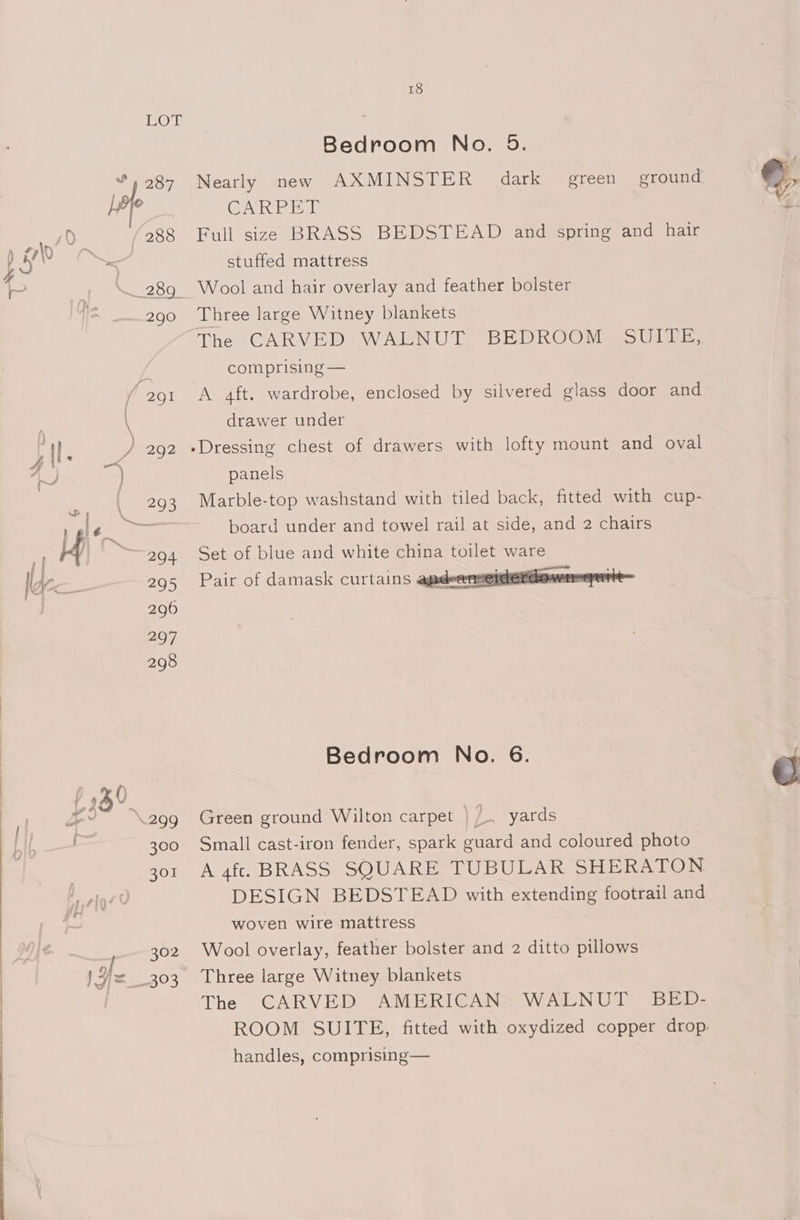 18
LOT
Bedroom No. 5.
287 Nearly new AXMINSTER dark green ground
CARPET
288 Full size BRASS BEDSTEAD and spring and hair
stuffed mattress
289 Wool and hair overlay and feather bolster
290 Three large Witney blankets
The CARVED WALNUT BEDROOM SUITE,
comprising—
291 A 4ft. wardrobe, enclosed by silvered glass door and
drawer under
292 Dressing chest of drawers with lofty mount and oval
panels
293 Marble-top washstand with tiled back, fitted with cup-
board under and towel rail at side, and 2 chairs
294 Set of blue and white china toilet ware
295 Pair of damask curtains and an eiderdown quilt
296
297
298
Bedroom No. 6.
299 Green ground Wilton carpet yards
300 Small cast-iron fender, spark guard and coloured photo
301 A 4ft. BRASS SQUARE TUBULAR SHERATON
DESIGN BEDSTEAD with extending footrail and
woven wire mattress
302 Wool overlay, feather bolster and 2 ditto pillows
303 Three large Witney blankets
The CARVED AMERICAN WALNUT BED-
ROOM SUITE, fitted with oxydized copper drop
handles, comprising—